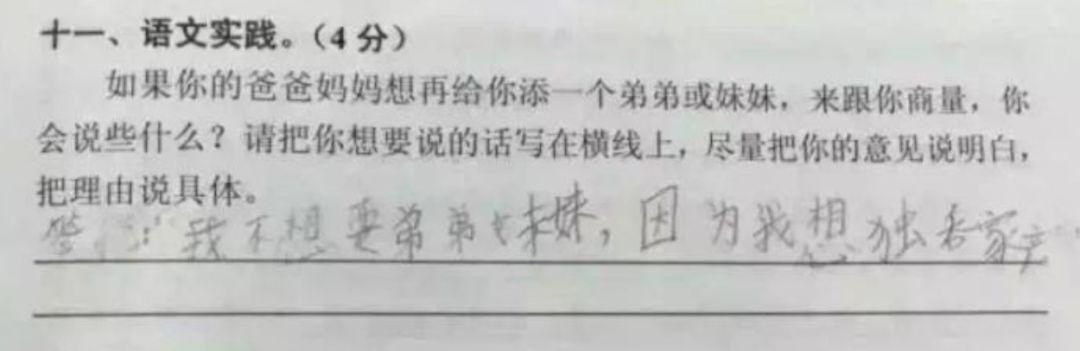 十一、语文实践。（4分）
如果你的爸爸妈妈想再给你添一个弟弟或妹妹，来跟你商量，你
会说些什么？请把你想要说的话写在横线上，尽量把你的意见说明白，
把理由说具体。
答：我不想要弟弟妹妹，因为我想独吞家产